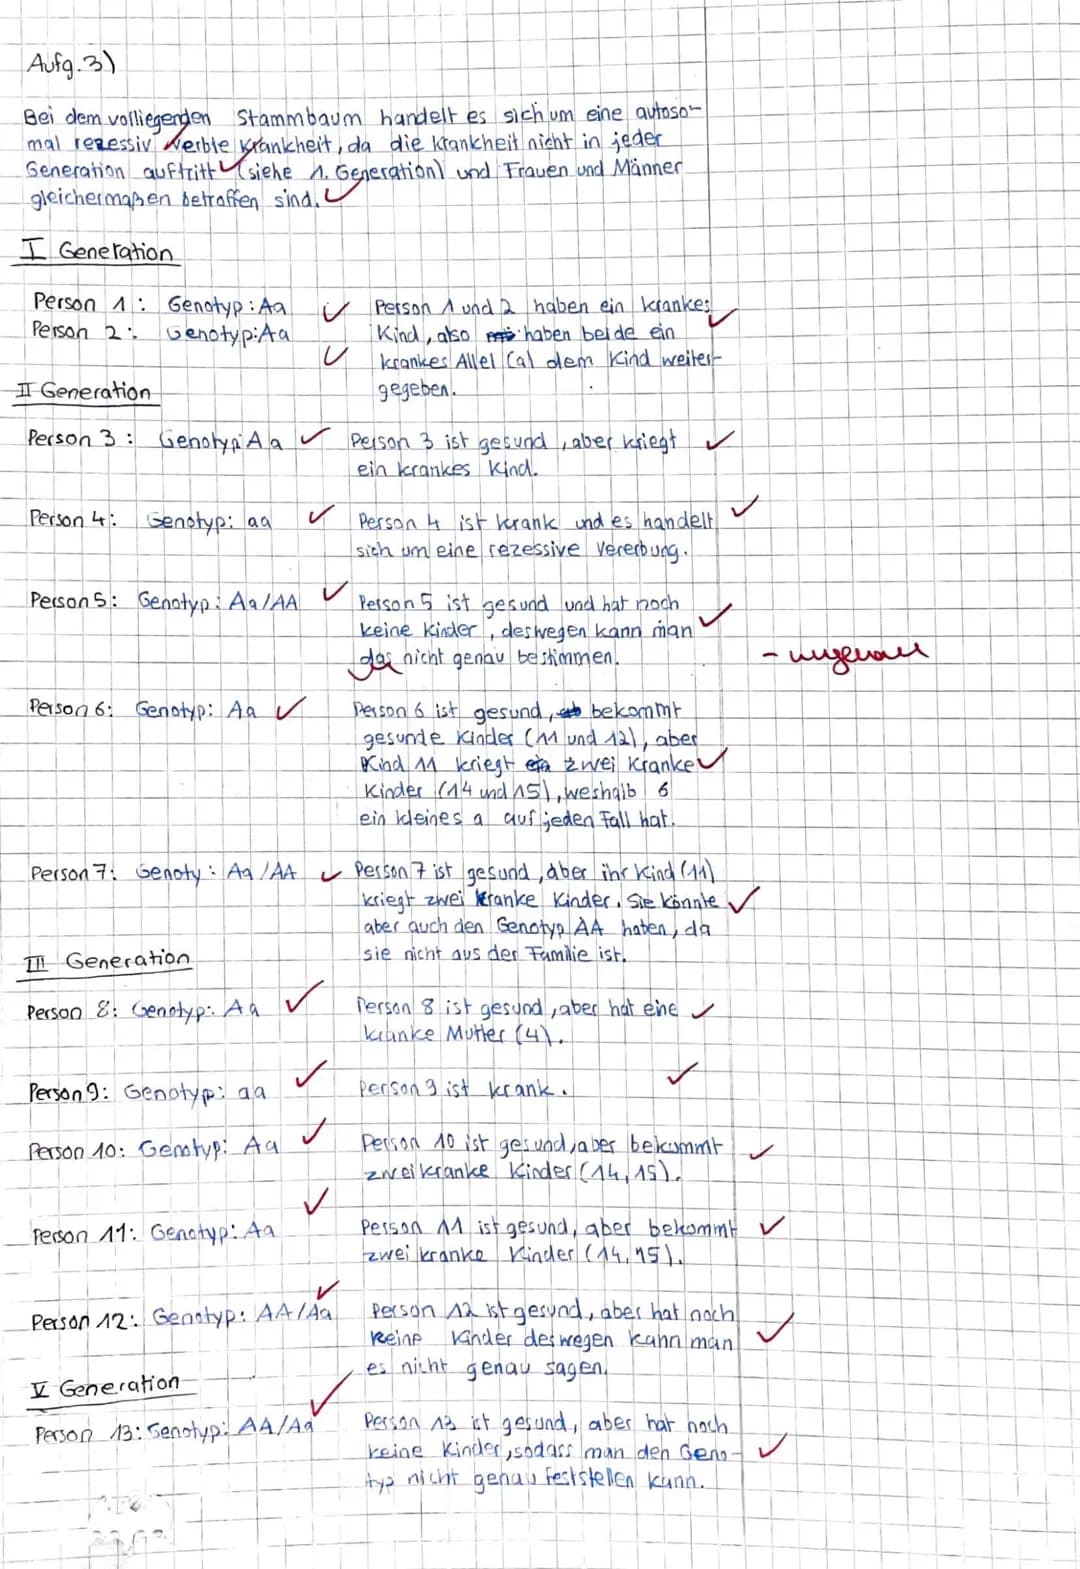 Aufg. 3)
Bei dem volliegenden Stammbaum handelt es sich um eine autoso-
mal rezessiv verbte Krankheit, da die Krankheit nicht in jeder
Generation auftritt (siehe 1. Generation) und Frauen und Männer
gleichermaßen betroffen sind.
I Generation
Person 1: Genotyp: Aa Person 1 und 2 haben ein krankes
Person 2: Genotyp: Aa Kind, also haben beide ein
krankes Allel (a) dem Kind weiter-
gegeben.
II Generation
Person 3: Genotyp: Aa Person 3 ist gesund, aber kriegt
ein krankes Kind.
Person 4: Genotyp: aa Person 4 ist krank und es handelt
sich um eine rezessive Vererbung.
Person 5: Genotyp: Aa/AA Person 5 ist gesund und hat noch
keine Kinder, deswegen kann man
das nicht genau bestimmen.
- ungenau
Person 6: Genotyp: Aa Person 6 ist gesund, bekommt
gesunde Kinder (11 und 12), aber
Kind 11 kriegt zwei kranke
Kinder (14 und 15), weshalb 6
ein kleines a auf jeden Fall hat.
Person 7: Genoty: Aa/AA Person 7 ist gesund, aber ihr Kind (11)
kriegt zwei kranke Kinder. Sie könnte
aber auch den Genotyp AA haben, da
sie nicht aus der Familie ist.
III Generation
Person 8: Genotyp: Aa Person 8 ist gesund, aber hat eine
kranke Mutter (4).
Person 9: Genotyp: aa Person 9 ist krank.
Person 10: Genotyp: Aa Person 10 ist gesund, aber bekommt
zwei kranke Kinder (14, 15).
Person 11: Genotyp: Aa Person 11 ist gesund, aber bekommt
zwei kranke Kinder (14, 15).
Person 12: Genotyp: AA/Aa Person 12 ist gesund, aber hat noch
keine Kinder deswegen kann man
es nicht genau sagen.
V Generation
Person 13: Genotyp: AA/Aa Person 13 ist gesund, aber hat noch
keine Kinder, sodass man den Geno-
typ nicht genau feststellen kann.